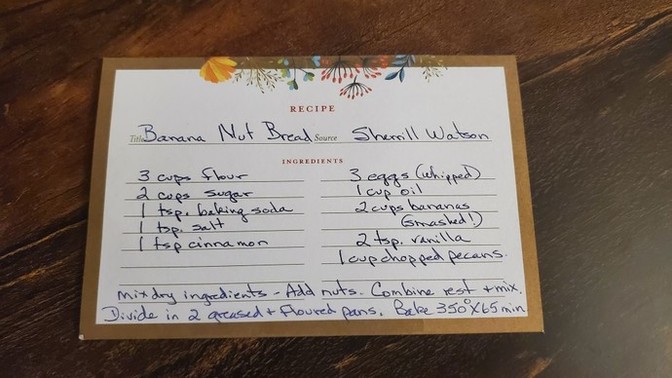 RECIPE
Title Banana Nut Bread Source Sherrill Watson
INGREDIENTS
3 cups flour
2 cups sugar
1 tsp. baking soda
1 tsp. salt
1 tsp cinnamon
3 eggs (whipped)
1 cup oil
2 cups bananas
(smashed!)
2 tsp. vanilla
1 cup chopped pecans.
Mix dry ingredients - Add nuts. Combine rest + mix.
Divide in 2 greased + floured pans. Bake 350° X 65 min